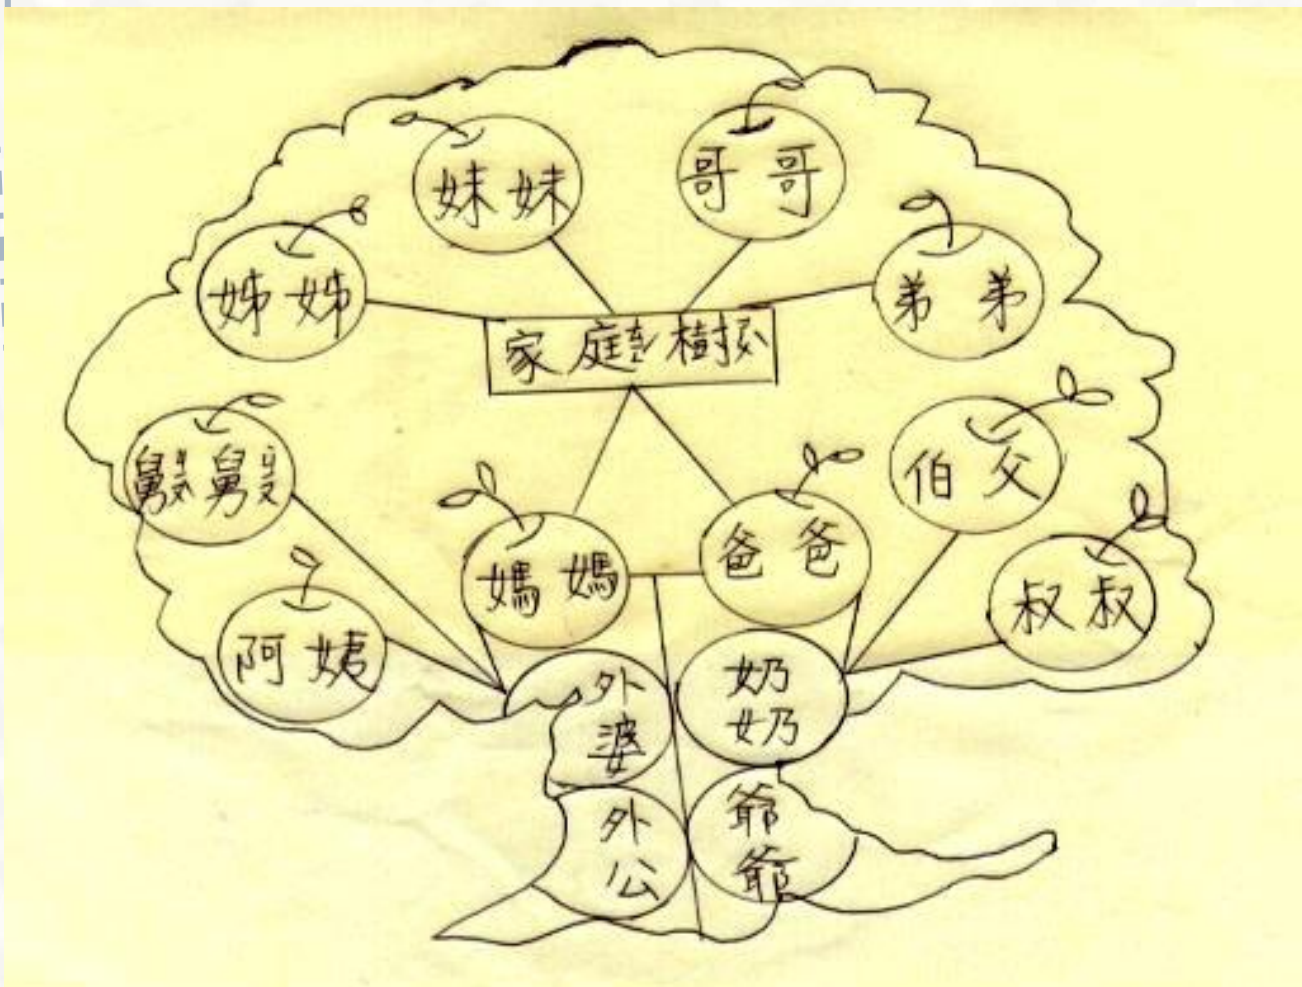 妹妹
哥哥
姊姊
弟弟
家庭樹
舅舅
伯父
媽媽
爸爸
阿姨
叔叔
外婆
奶奶
外公
爺爺